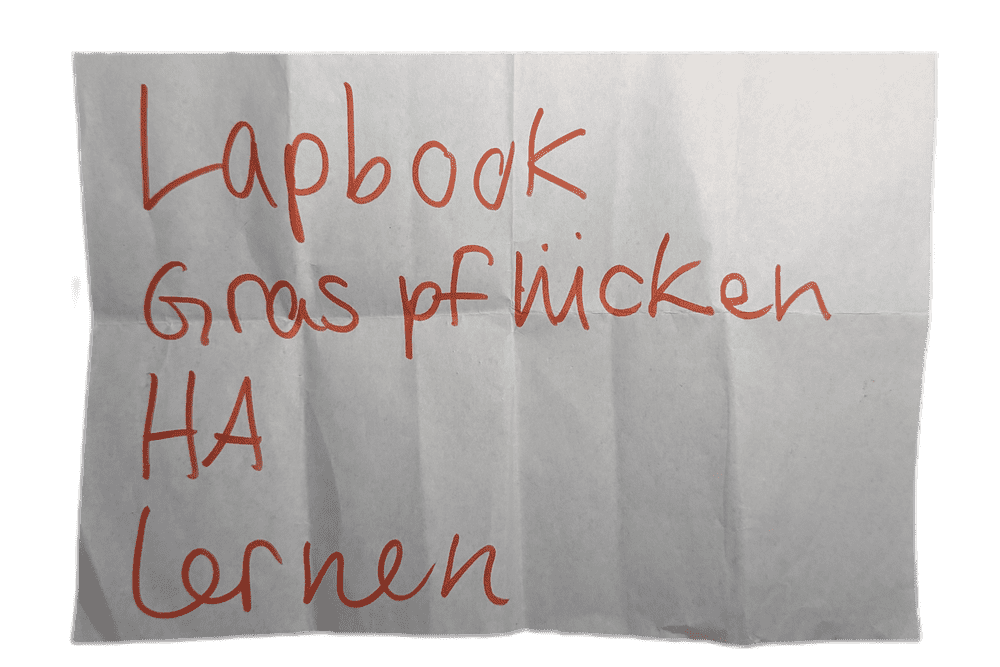 Lapbook
Gras pflücken
HA
lernen